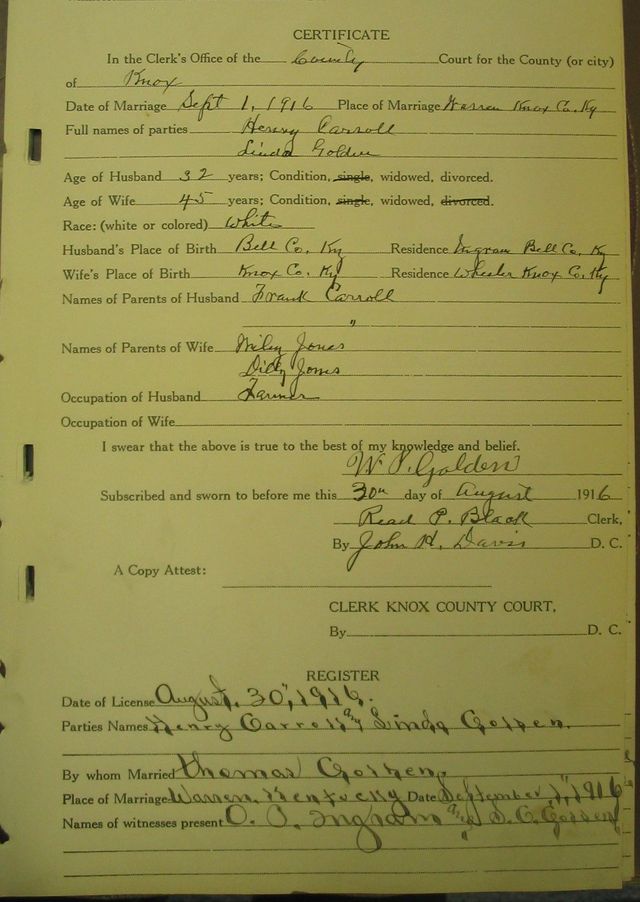 CERTIFICATE
In the Clerk's Office of the County Court for the County (or city)
of Knox
Date of Marriage Sept 1, 1916 Place of Marriage Warren Knox Co. Ky
Full names of parties Henry Carroll
Linda Golden
Age of Husband 32 years; Condition, single, widowed, divorced.
Age of Wife 45 years; Condition, single, widowed, divorced.
Race: (white or colored) White
Husband's Place of Birth Bell Co. Ky Residence Ingram Bell Co. Ky
Wife's Place of Birth Knox Co. Ky Residence Wheeler Knox Co. Ky
Names of Parents of Husband Frank Carroll
"
Names of Parents of Wife Wiley Jones
Dilly Jones
Occupation of Husband Farmer
Occupation of Wife
I swear that the above is true to the best of my knowledge and belief.
Golden
Subscribed and sworn to before me this 30th day of August 1916
Read P. Black Clerk,
By John H. Davis D. C.
A Copy Attest:
CLERK KNOX COUNTY COURT,
By D. C.
REGISTER
Date of License August, 30", 1916.
Parties Names Henry Carroll, and Linda Golden.
By whom Married Thomas Golden,
Place of Marriage Warren, Kentucky Date September 1", 1916
Names of witnesses present Ingram and